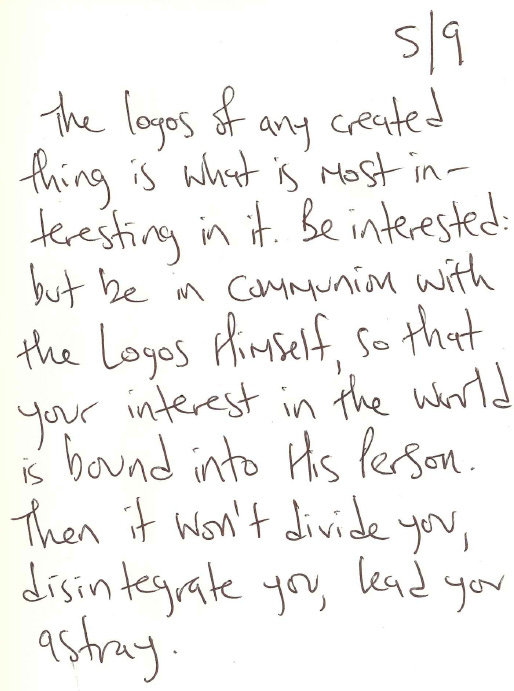 5/9
The logos of any created
thing is what is most in-
teresting in it. Be interested:
but be in communion with
the Logos Himself, so that
your interest in the world
is bound into His Person.
Then it won't divide you,
disintegrate you, lead you
astray.